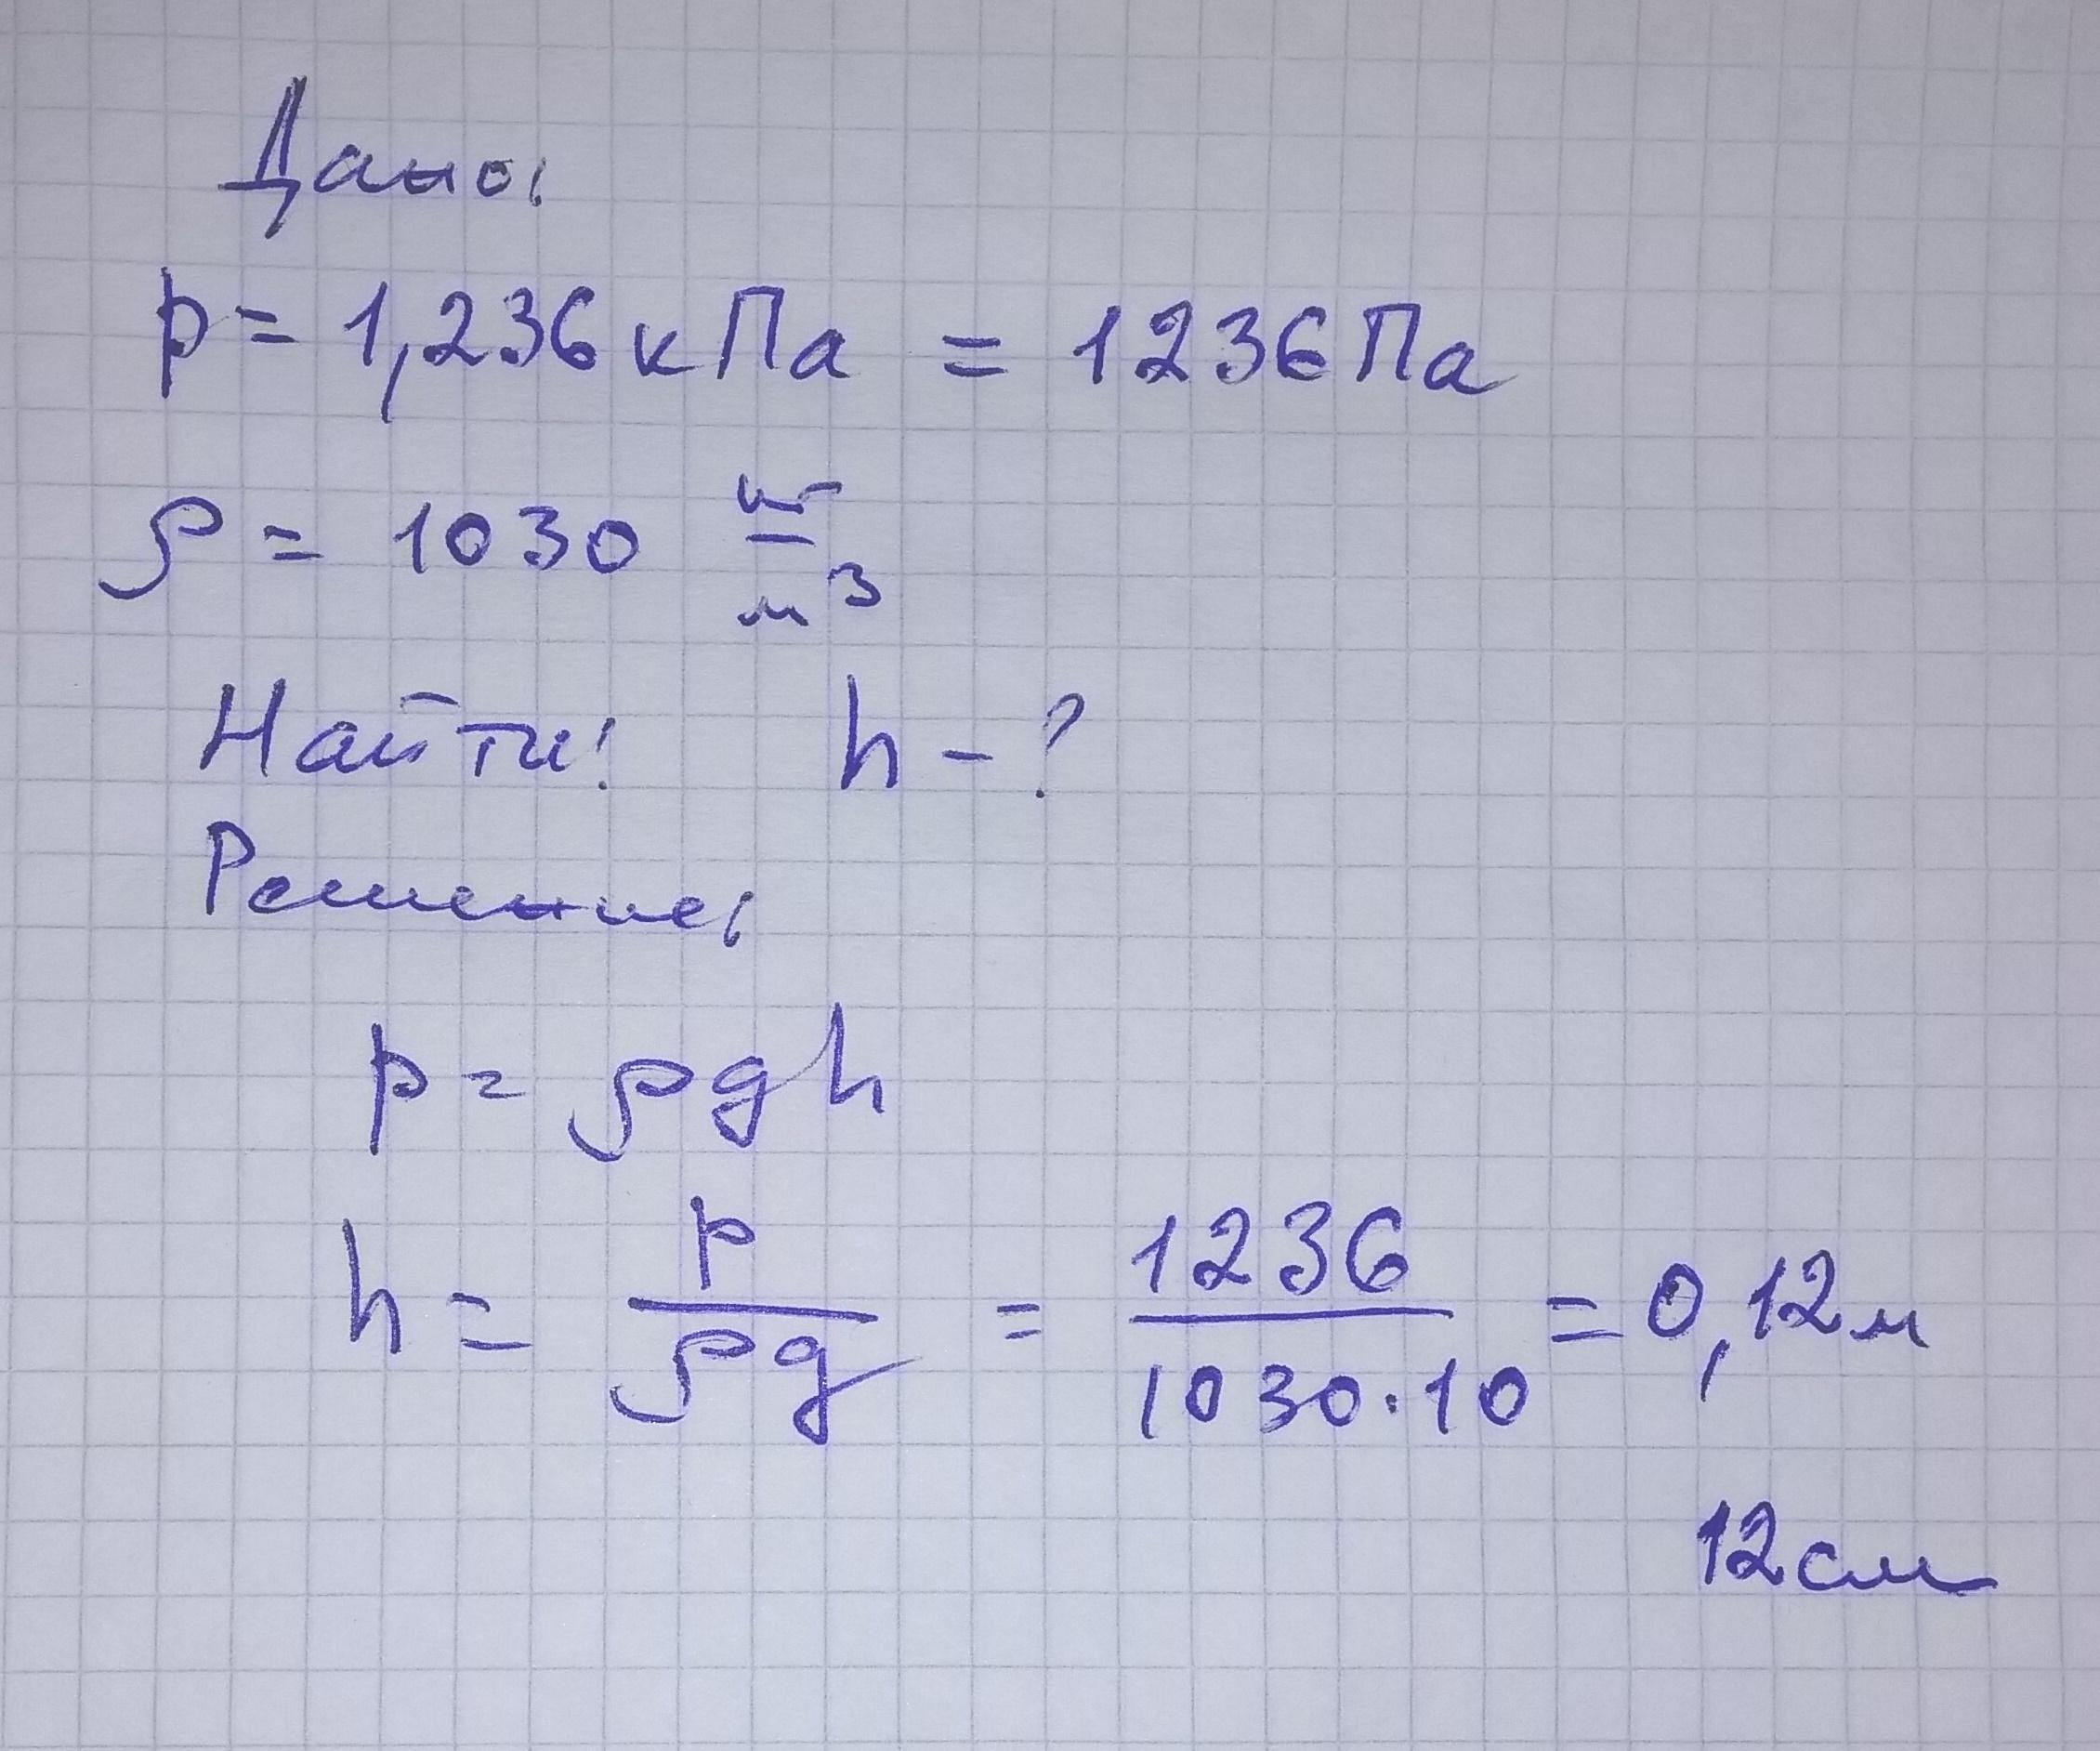 Дано:
p = 1,236 кПа = 1236 Па
ρ = 1030 кг/м³
Найти: h - ?
Решение:
p = ρgh
h = p/ρg = 1236/1030·10 = 0,12 м
12 см